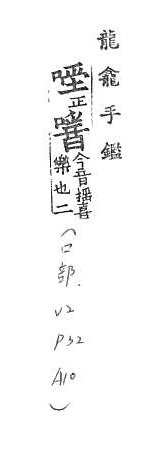 龍龕手鑑
正
今音揺喜
樂也二
(口部.
V2
P32
A10)